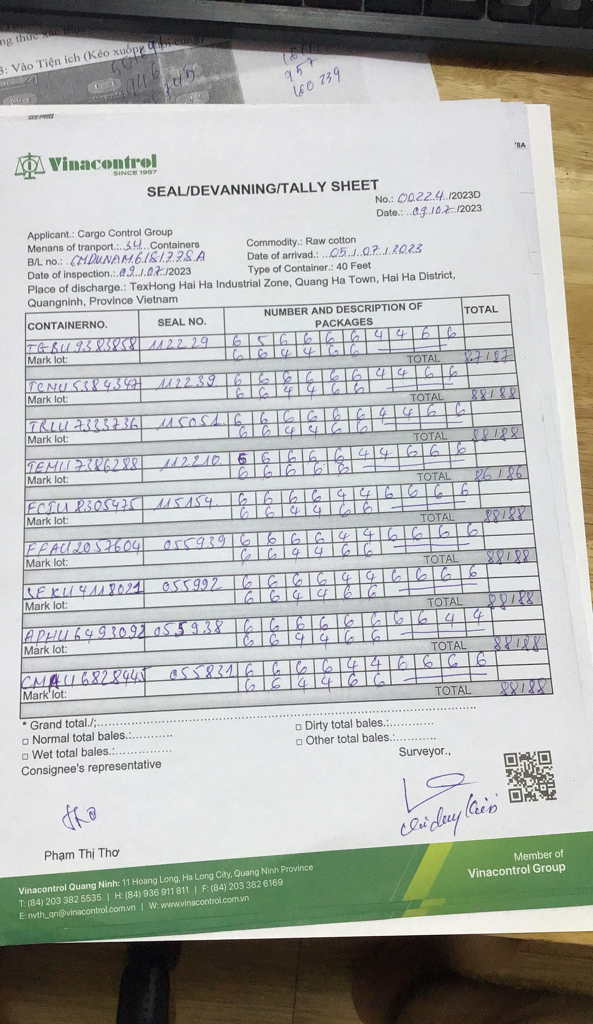 3: Vào Tiện ích (Kéo xuống
957
LEO 239
Vinacontrol
SINCE 1957
SEAL/DEVANNING/TALLY SHEET
No.: 00224/2023D
Date.: 09.07/2023
Applicant.: Cargo Control Group
Menans of tranport.: 34 Containers
Commodity.: Raw cotton
B/L no.: CMDUNAM6181778A
Date of arrivad.: 05/07/2023
Date of inspection.: 09/07/2023
Type of Container.: 40 Feet
Place of discharge.: TexHong Hai Ha Industrial Zone, Quang Ha Town, Hai Ha District,
Quangninh, Province Vietnam
CONTAINERNO. SEAL NO. NUMBER AND DESCRIPTION OF PACKAGES TOTAL
TGBU9383858 112229 6 5 6 6 6 6 4 4 6 6
6 6 4 4 6 6
Mark lot: TOTAL 87/87
TCNU5384347 112239 6 6 6 6 6 6 4 4 6 6
6 6 4 4 6 6
Mark lot: TOTAL 88/88
TRLU7333736 115051 6 6 6 6 6 6 4 4 6 6
6 6 4 4 6 6
Mark lot: TOTAL 88/88
TEMU7386288 112210 6 6 6 6 6 4 4 6 6 6
6 6 6 6 6
Mark lot: TOTAL 86/86
FCIU8305475 115154 6 6 6 6 4 4 6 6 6 6
6 6 4 4 6 6
Mark lot: TOTAL 88/88
FFAU2057604 055939 6 6 6 6 4 4 6 6 6 6
6 6 4 4 6 6
Mark lot: TOTAL 88/88
SEKU4118021 055992 6 6 6 6 4 4 6 6 6 6
6 6 4 4 6 6
Mark lot: TOTAL 88/88
APHU6493092 055938 6 6 6 6 6 6 6 6 4 4
6 6 4 4 6 6
Mark lot: TOTAL 88/88
CMAU6828445 055831 6 6 6 6 4 4 6 6 6 6
6 6 4 4 6 6
Mark lot: TOTAL 88/88
* Grand total./;
□ Normal total bales.: □ Dirty total bales.:
□ Wet total bales.: □ Other total bales.:
Consignee's representative Surveyor.,
Phạm Thị Thơ
Vinacontrol Quang Ninh: 11 Hoang Long, Ha Long City, Quang Ninh Province
T: (84) 203 382 5535 | H: (84) 936 911 811 | F: (84) 203 382 6169
E: nvth_qn@vinacontrol.com.vn | W: www.vinacontrol.com.vn
Member of
Vinacontrol Group